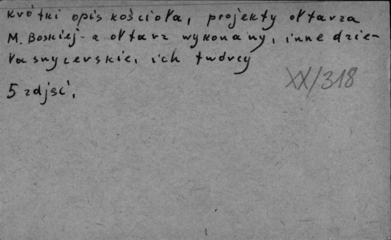 krótki opis kościoła, projekty ołtarza
M. Boskiej - a ołtarz wykonany, inne dzie-
ła snycerskie, ich twórcy
XX/318
5 zdjęć.